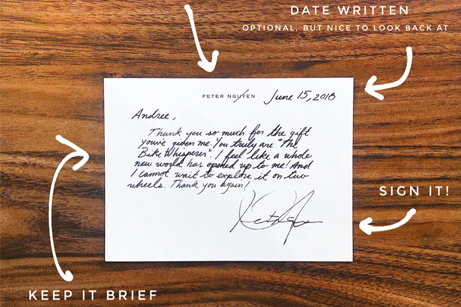 DATE WRITTEN
OPTIONAL, BUT NICE TO LOOK BACK AT
PETER NGUYEN
June 15, 2018
Andree,
Thank you so much for the gift
you've given me. You truly are "The
Bike Whisperer". I feel like a whole
new world has opened up to me! And
I cannot wait to explore it on two
wheels. Thank you again!
SIGN IT!
KEEP IT BRIEF